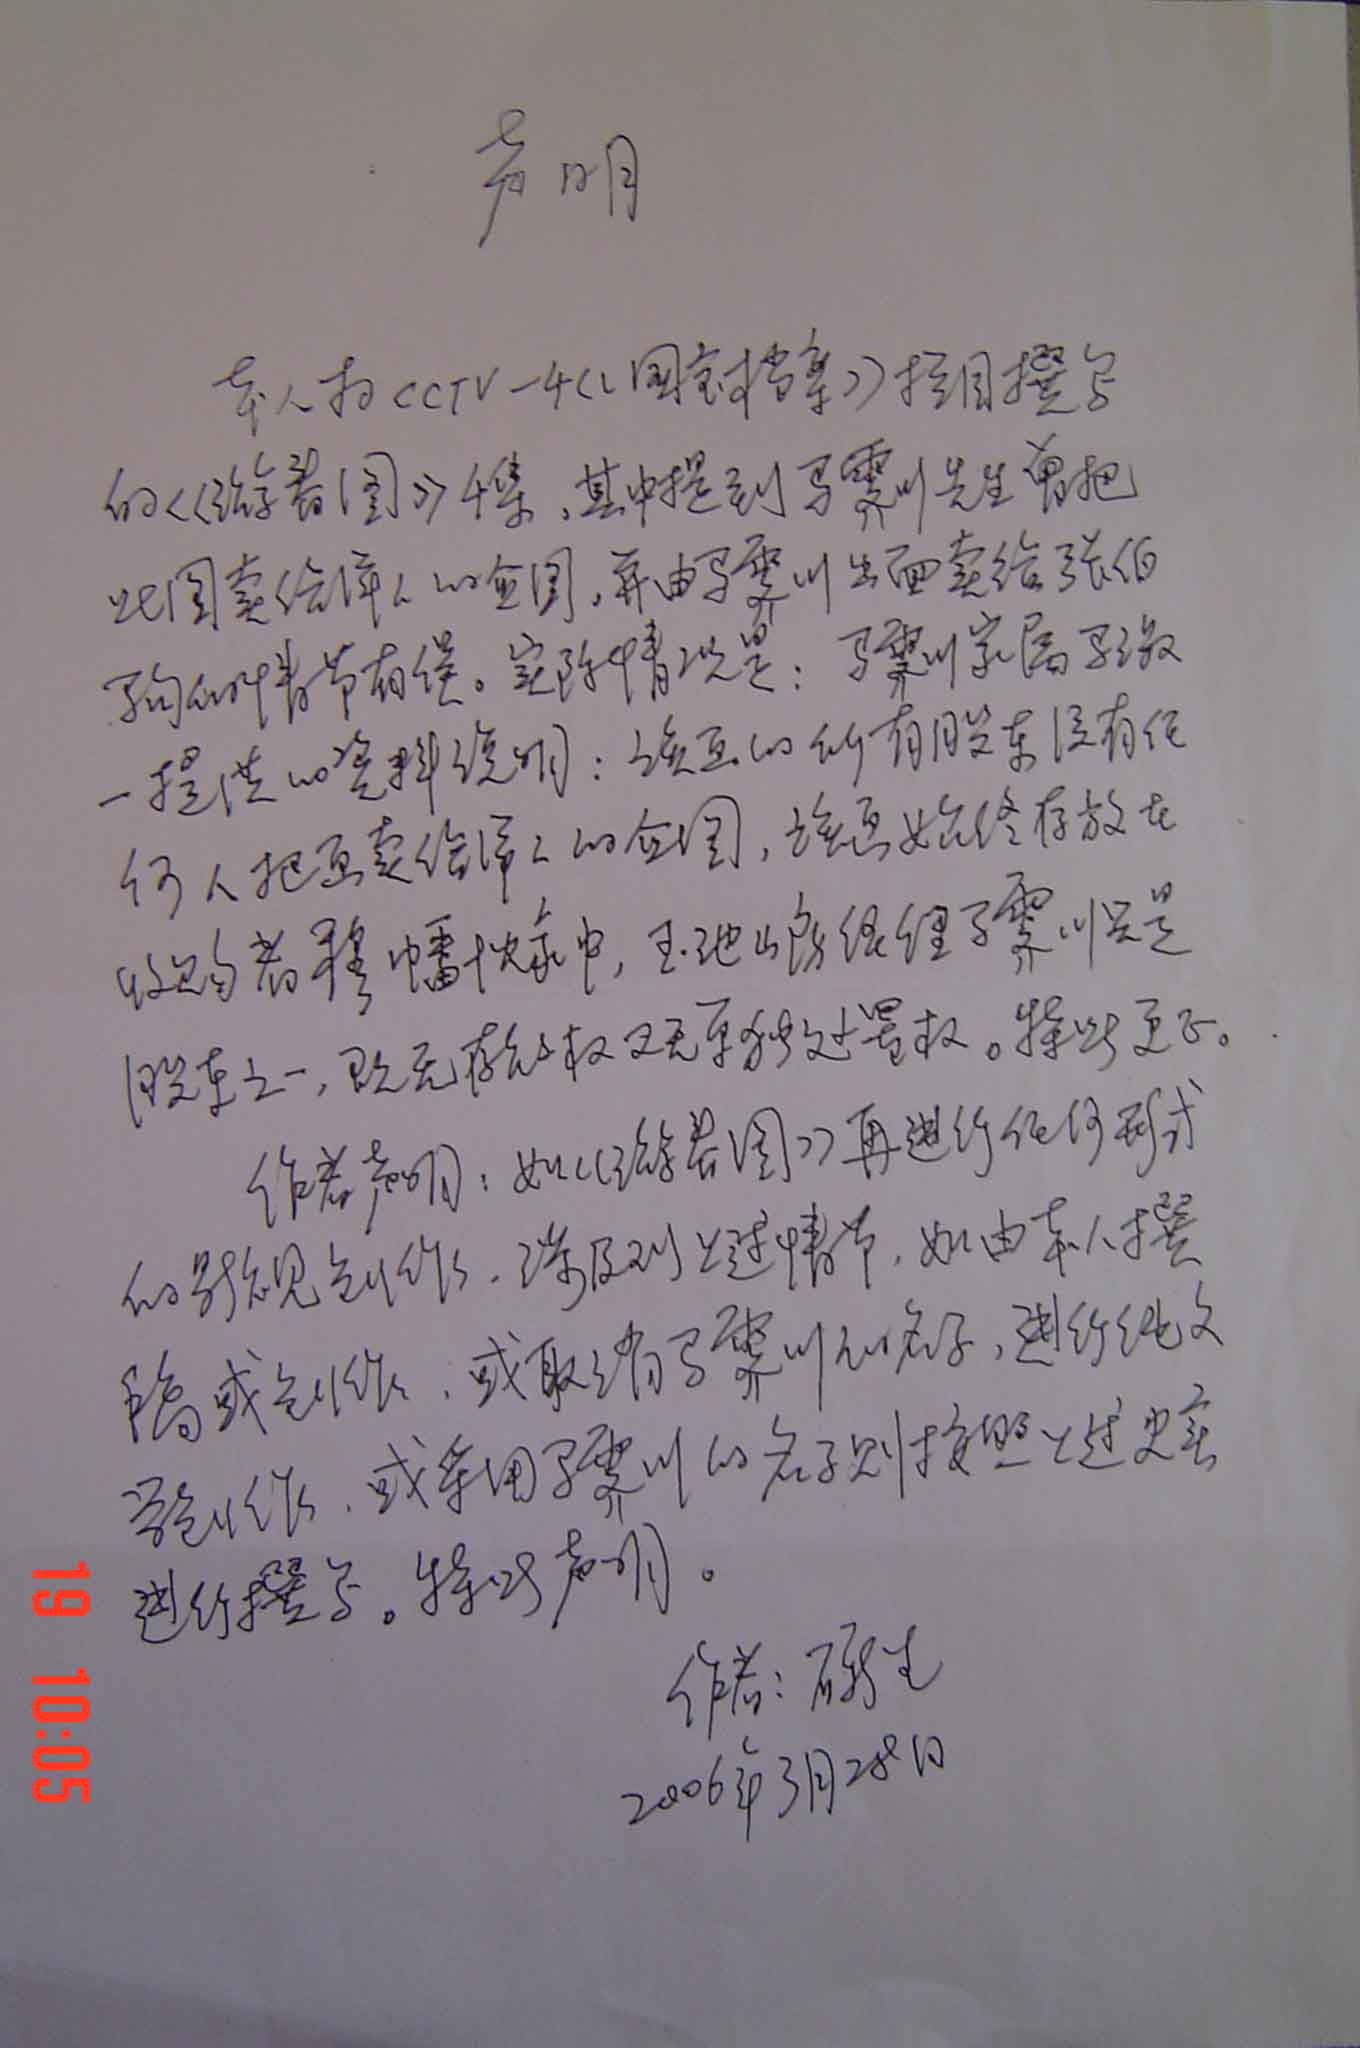 声明
本人为CCTV-4《国宝档案》栏目撰写
的《游春图》4集，其中提到马霁川先生曾把
此图卖给洋人的企图，并由马霁川出面卖给张伯
驹的情节有误。实际情况是：马霁川家属马淑
一提供的资料说明：该画的所有股东没有任
何人把画卖给洋人的企图，该画始终存放在
收购者穆蟠忱家中，玉池山房经理马霁川只是
股东之一，既无存放权又无单独处置权。特此更正。
作者声明：如《游春图》再进行任何形式
的影视创作，涉及到上述情节，如由本人撰
稿或创作，或取消马霁川的名子，进行纯文
学创作，或采用马霁川的名子则按照上述史实
进行撰写。特此声明。
作者：
2006年3月28日
19 10:05